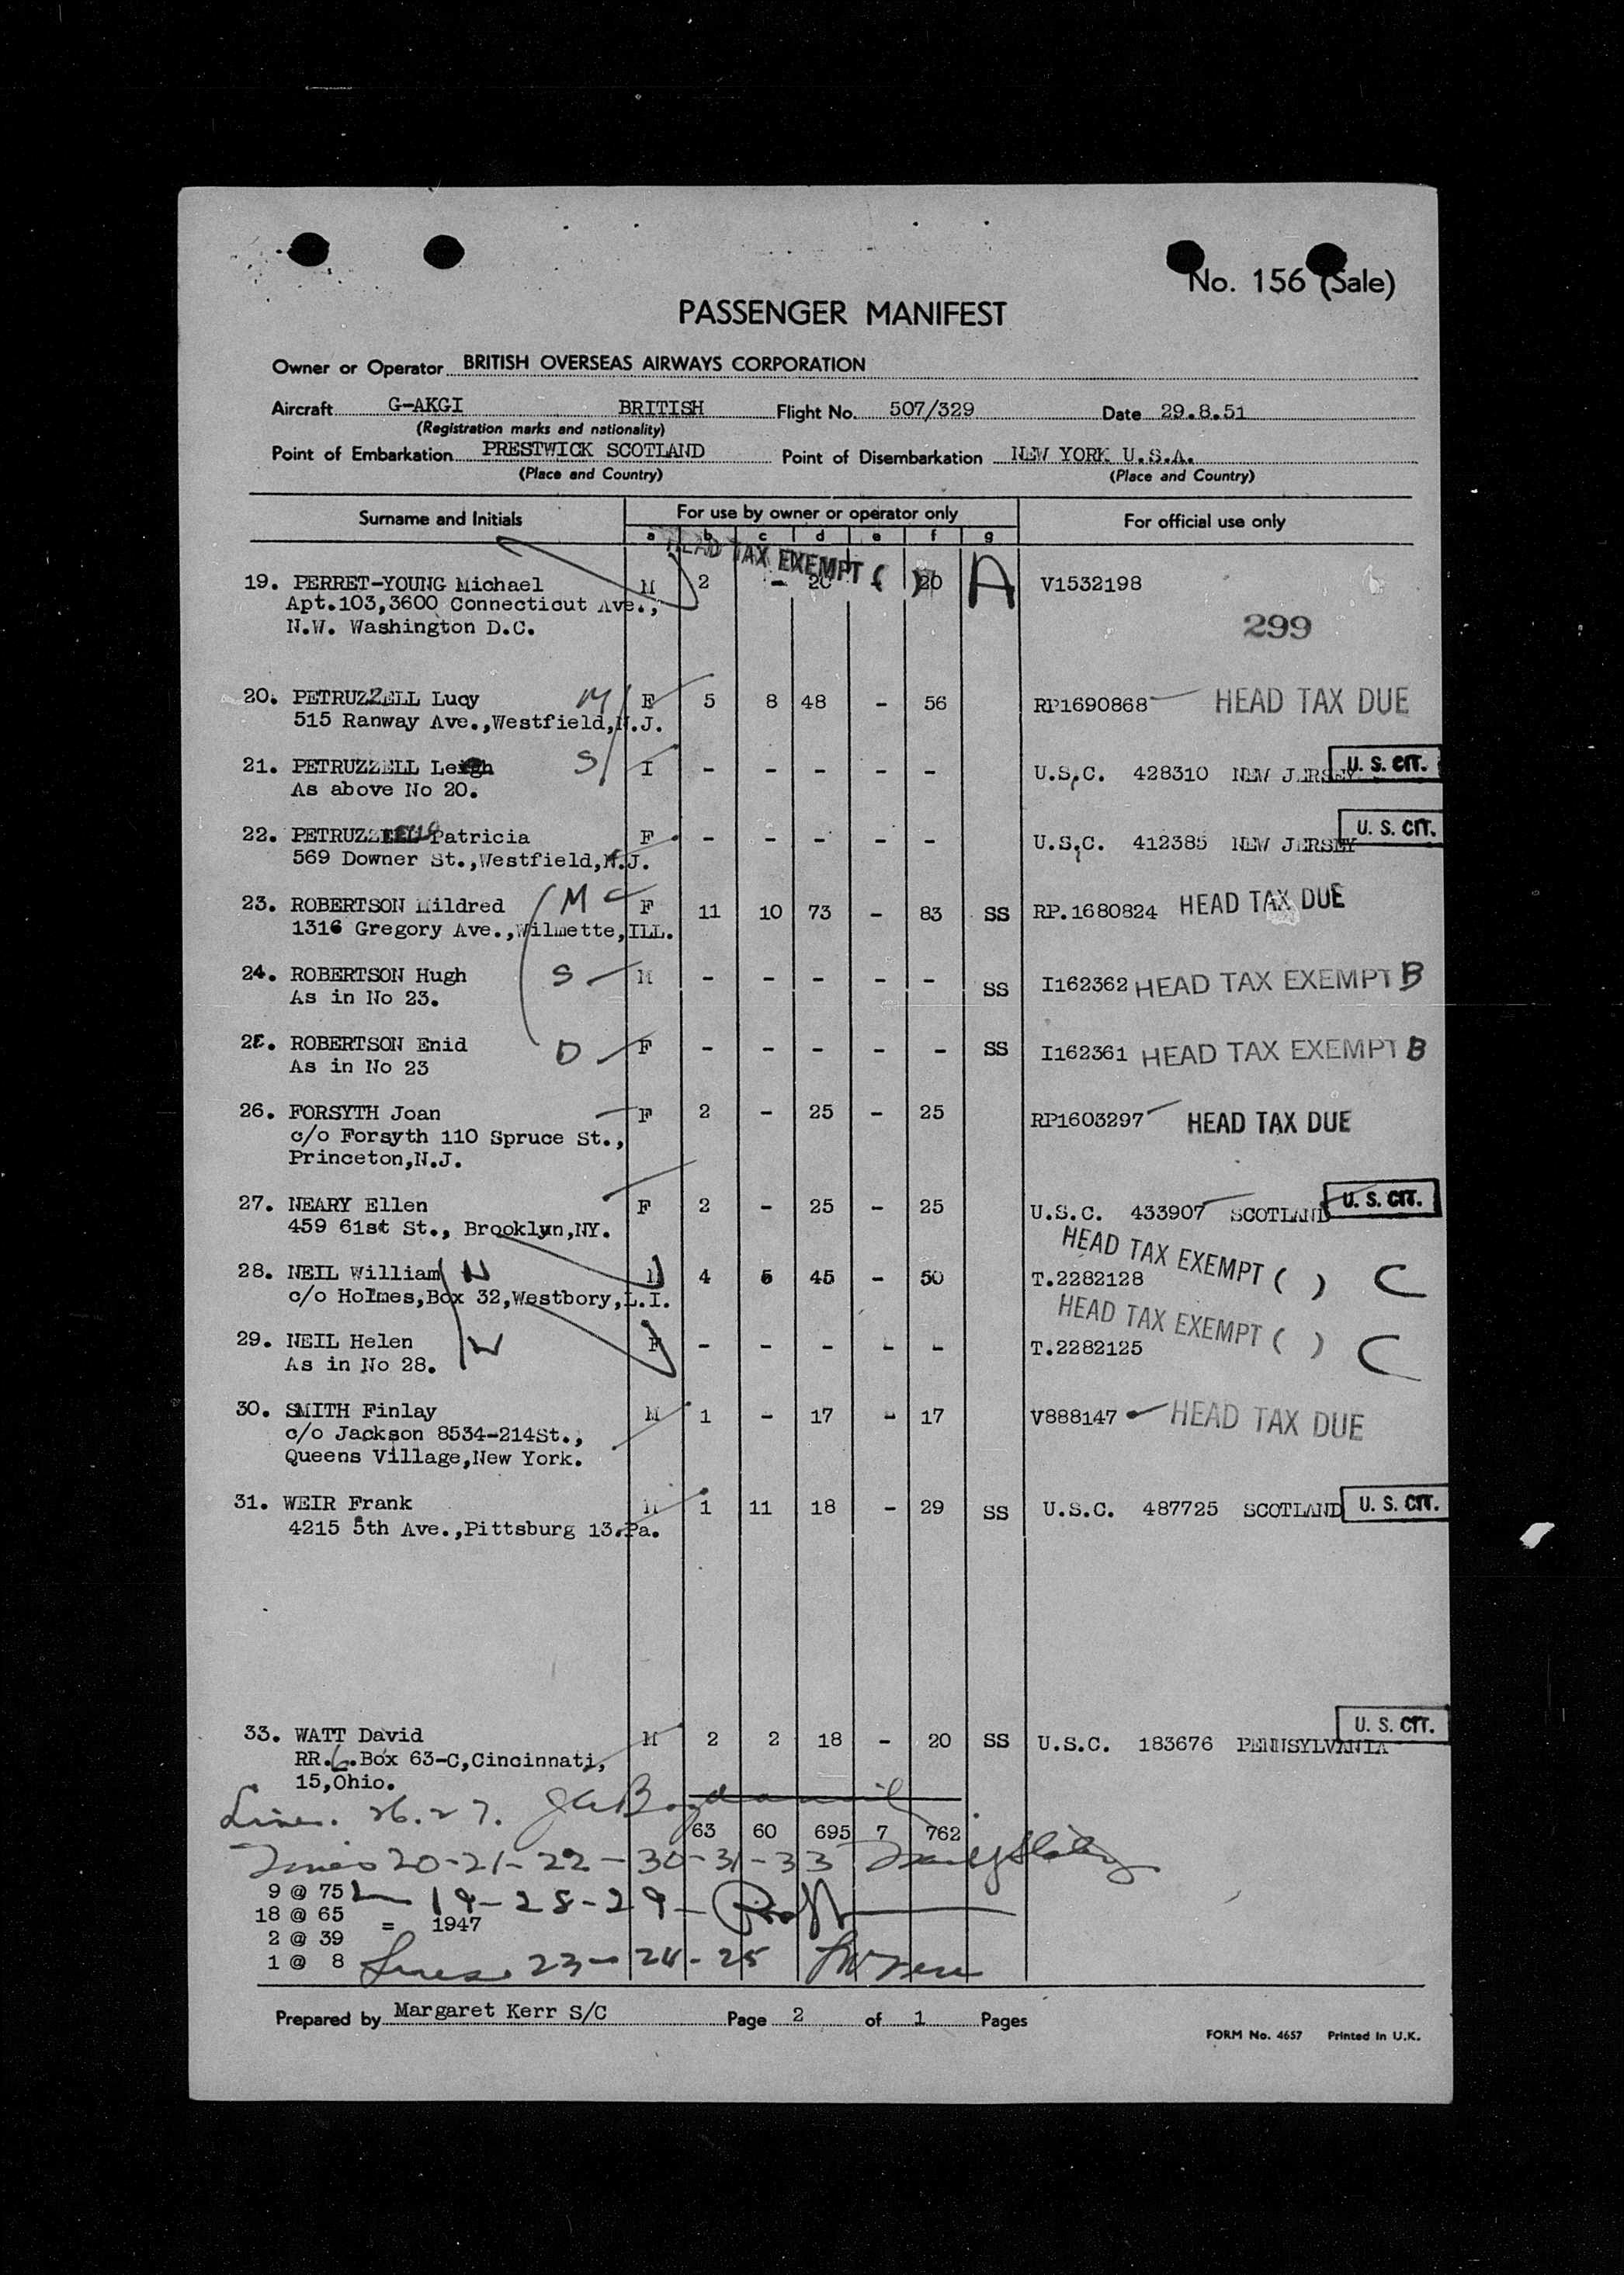 No. 156 (Sale)
PASSENGER MANIFEST
Owner or Operator BRITISH OVERSEAS AIRWAYS CORPORATION
Aircraft G-AKGI BRITISH Flight No. 507/329 Date 29.8.51
(Registration marks and nationality)
Point of Embarkation PRESTWICK SCOTLAND Point of Disembarkation NEW YORK U.S.A.
(Place and Country) (Place and Country)
Surname and Initials For use by owner or operator only For official use only
a b c d e f g
HEAD TAX EXEMPT ( )
19. PERRET-YOUNG Michael M 2 - 20 20 A V1532198
Apt.103,3600 Connecticut Ave.,
N.W. Washington D.C. 299
20. PETRUZZELL Lucy M F 5 8 48 - 56 RP1690868 HEAD TAX DUE
515 Ranway Ave.,Westfield,N.J.
21. PETRUZZELL Leigh S I - - - - - U.S.C. 428310 NEW JERSEY U. S. CIT.
As above No 20.
22. PETRUZZELL Patricia F - - - - - U.S.C. 412385 NEW JERSEY U. S. CIT.
569 Downer St.,Westfield,N.J.
23. ROBERTSON Mildred M F 11 10 73 - 83 SS RP.1680824 HEAD TAX DUE
1316 Gregory Ave.,Wilmette,ILL.
24. ROBERTSON Hugh S M - - - - - SS I162362 HEAD TAX EXEMPT B
As in No 23.
25. ROBERTSON Enid D F - - - - - SS I162361 HEAD TAX EXEMPT B
As in No 23
26. FORSYTH Joan F 2 - 25 - 25 RP1603297 HEAD TAX DUE
c/o Forsyth 110 Spruce St.,
Princeton,N.J.
27. NEARY Ellen F 2 - 25 - 25 U.S.C. 433907 SCOTLAND U. S. CIT.
459 61st St., Brooklyn,NY.
HEAD TAX EXEMPT ( ) C
28. NEIL William H M 4 5 45 - 50 T.2282128
c/o Holmes,Box 32,Westbory,L.I.
HEAD TAX EXEMPT ( ) C
29. NEIL Helen W F - - - - - T.2282125
As in No 28.
30. SMITH Finlay M 1 - 17 - 17 V888147 HEAD TAX DUE
c/o Jackson 8534-214St.,
Queens Village,New York.
31. WEIR Frank M 1 11 18 - 29 SS U.S.C. 487725 SCOTLAND U. S. CIT.
4215 5th Ave.,Pittsburg 13.Pa.
33. WATT David M 2 2 18 - 20 SS U.S.C. 183676 PENNSYLVANIA U. S. CIT.
RR. .Box 63-C,Cincinnati,
15,Ohio.
Lines. 26. 27.
63 60 695 7 762
Lines 20-21-22-30-31-33
9 @ 75 L 19-28-29-
18 @ 65 = 1947
2 @ 39
1 @ 8 Lines. 23-24-25
Prepared by Margaret Kerr S/C Page 2 of 1 Pages
FORM No. 4657 Printed in U.K.